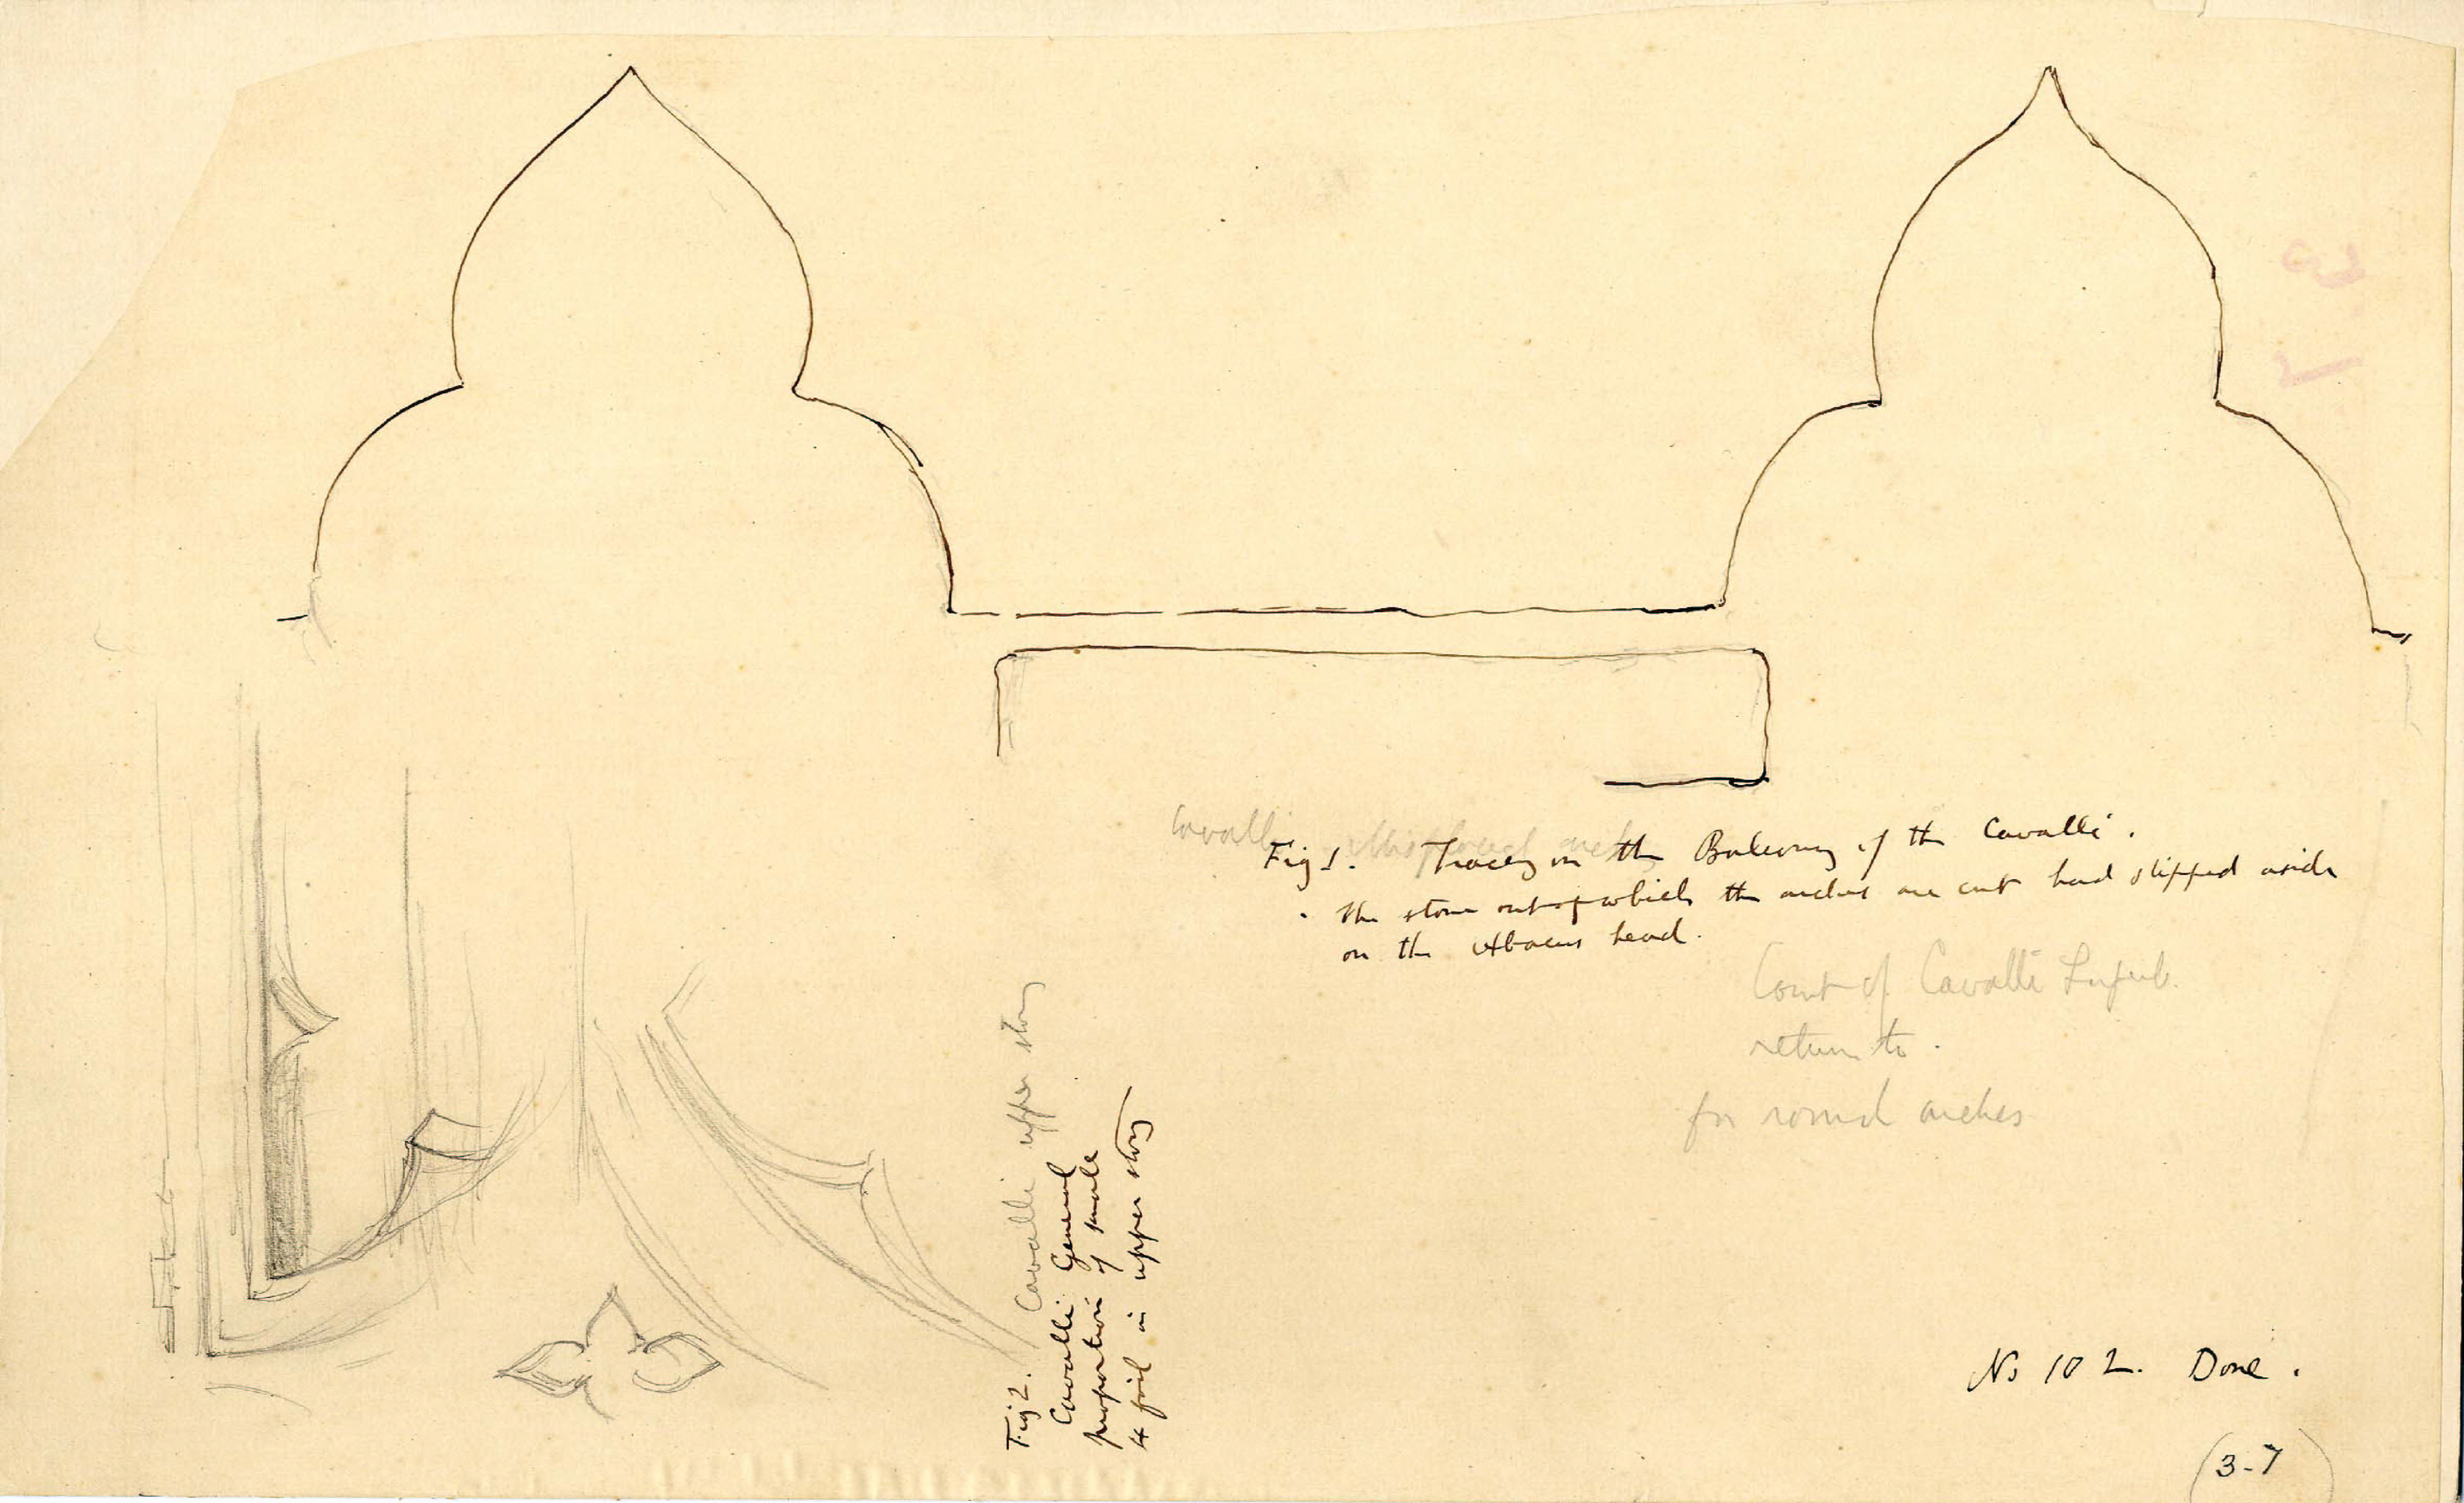 Cavalli
Fig 1. Tracery on the Balcony of the Cavalli.
. the stone out of which the arches are cut had slipped aside
on the Abacus head.
Court of Cavalli
return to.
for round arches
Fig 2. Cavalli upper story
Cavalli General
proportion of small
4 foil in upper story
No 102. Done.
(3-7)